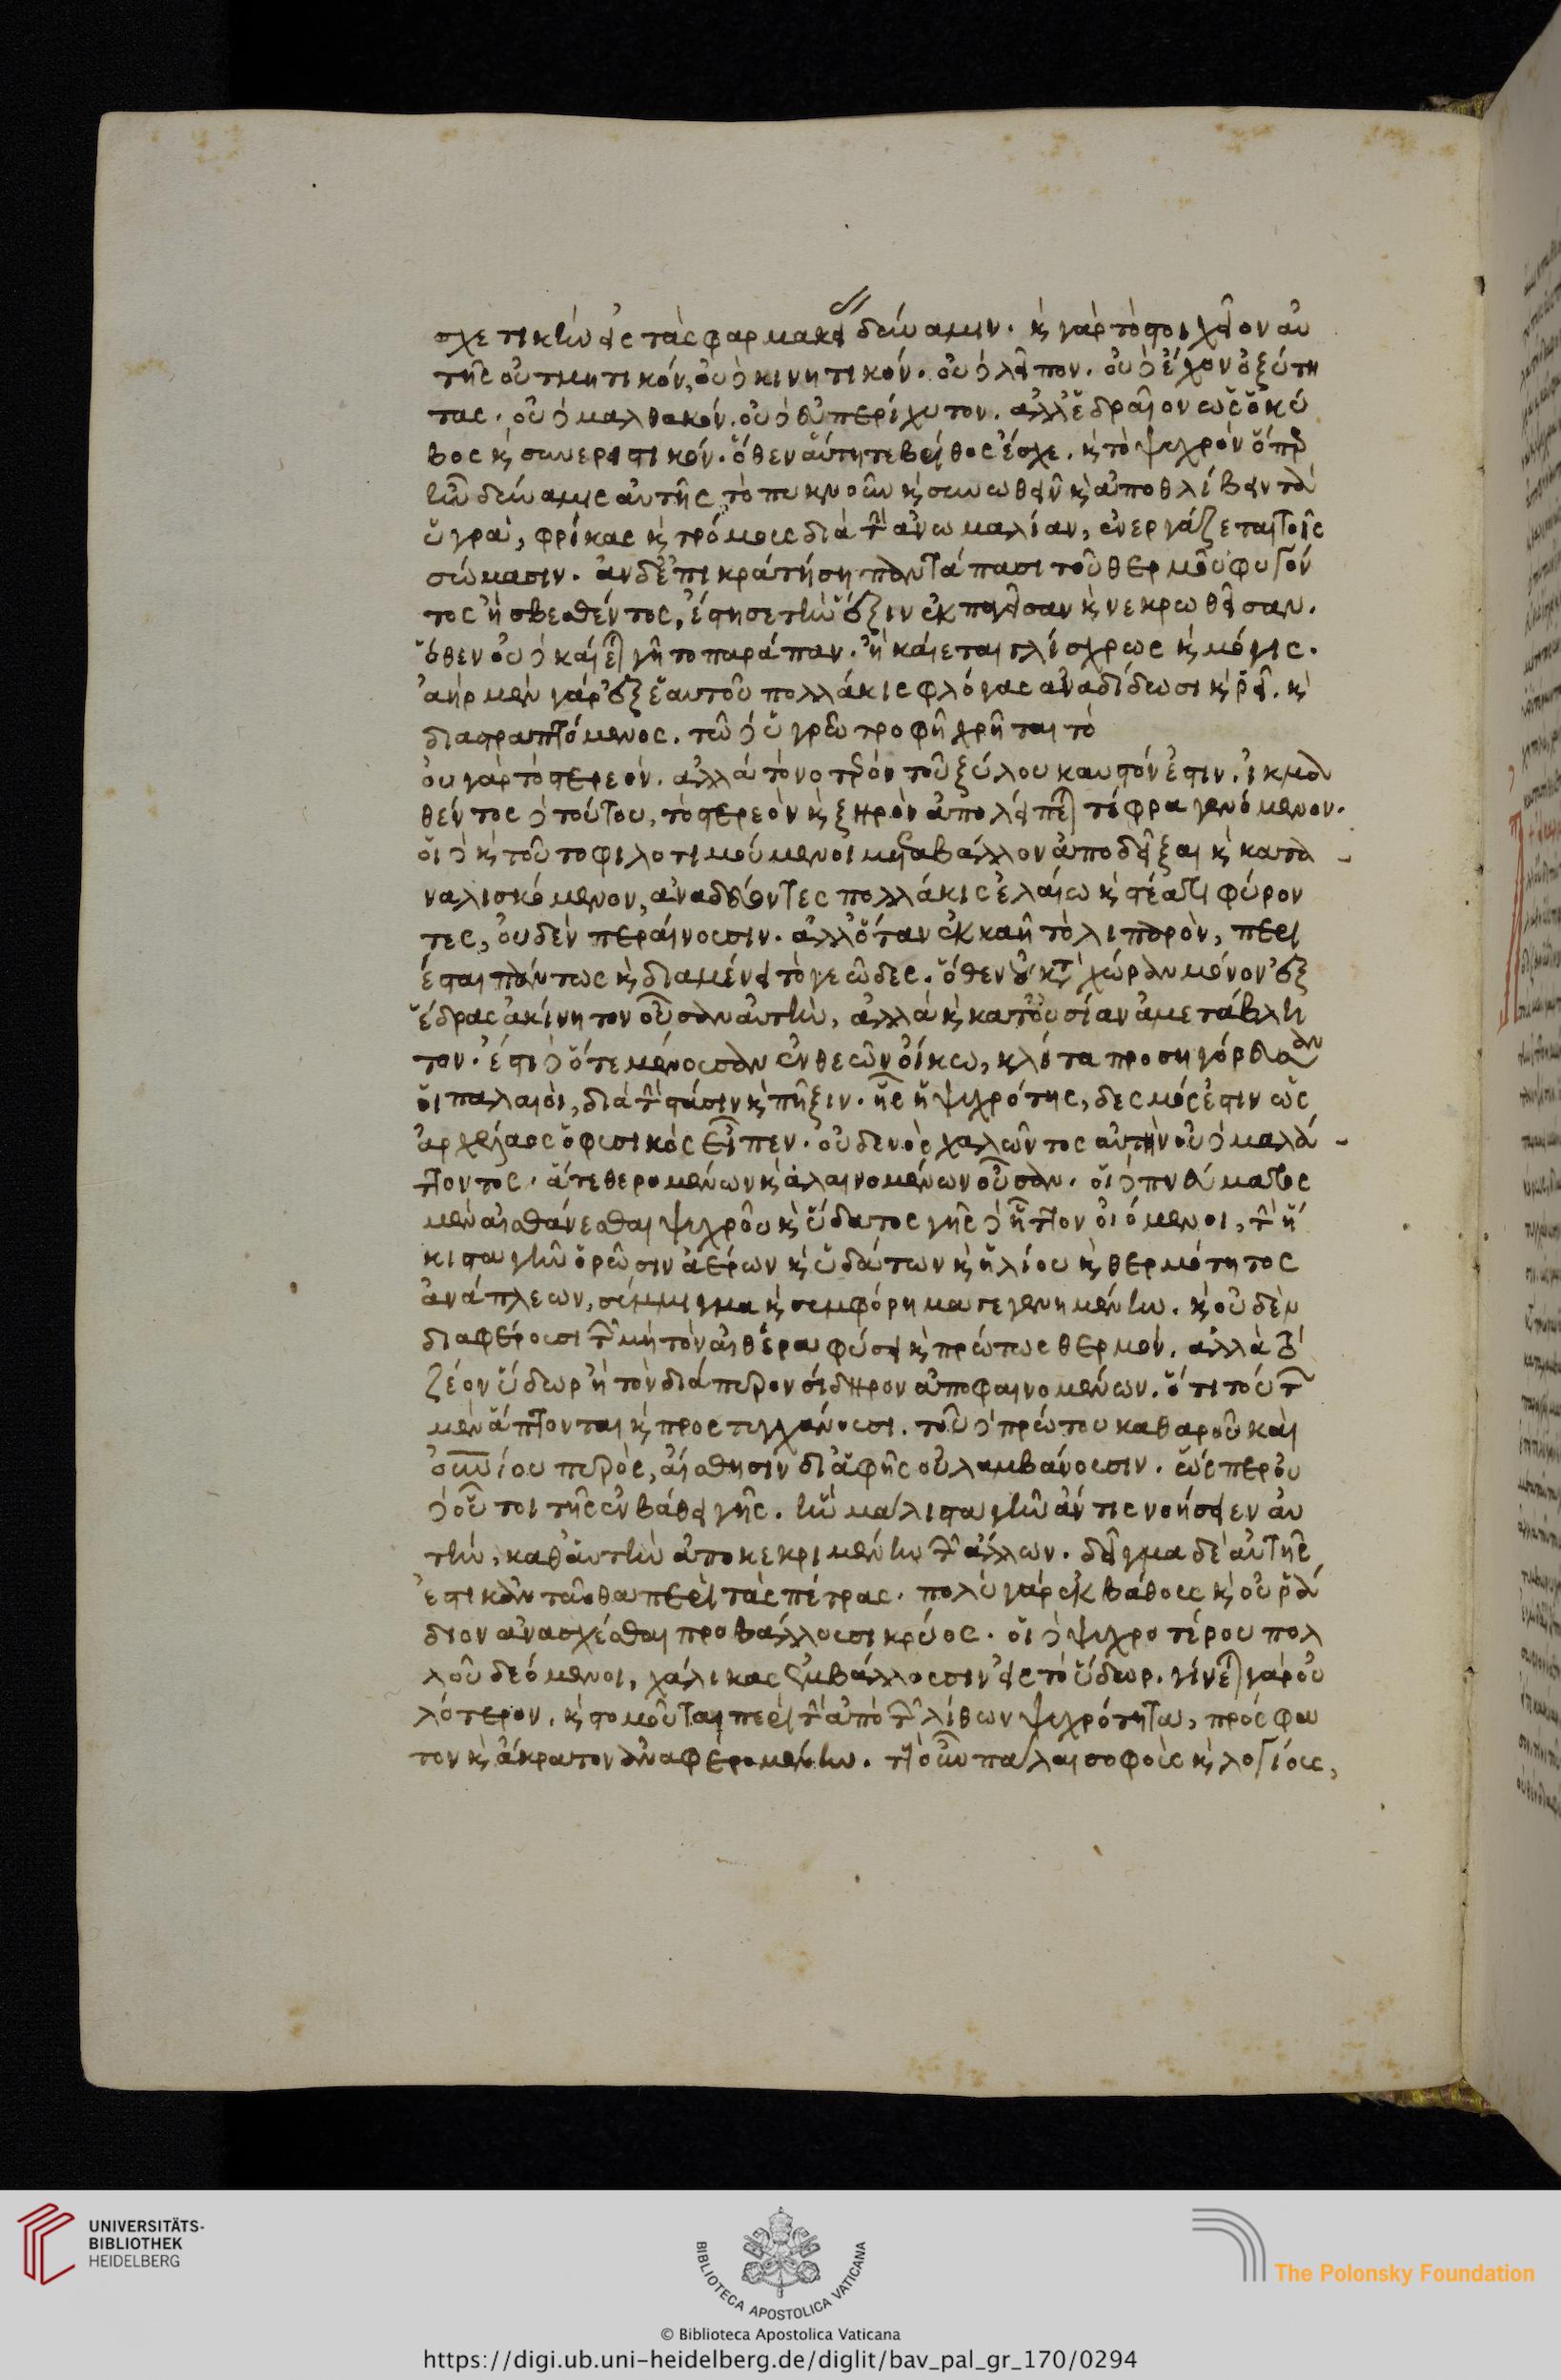 σχετικὴν εἰς τὰς φαρμακει δύναμιν. καὶ γὰρ τὸ στοιχεῖον αὐ
τῆς οὐ τμητικόν, οὐδὲ κινητικόν. οὐδὲ λεῖπον. οὐδὲ ἔχον ὀξύτη
τας. οὐδὲ μαλθακόν. οὐδὲ εὐπερίχυτον. ἀλλ' ἑδραῖον ὡς ὁ κύ
βος καὶ συνεριστικόν. ὅθεν αὕτη τε βρῖθος ἔσχε. καὶ τὸ ψυχρὸν ὅπερ
ἦν δύναμις αὐτῆς, τὸ πυκνοῦν καὶ συνωθεῖν καὶ ἀποθλίβειν τὰ
ὑγρὰ, φρίκας καὶ τρόμους διὰ τὴν ἀνωμαλίαν, ἐνεργάζεται τοῖς
σώμασιν. ἂν δ' ἐπικρατήσῃ παντάπασι τοῦ θερμοῦ φυγόν
τος ἢ σβεσθέντος, ἔστησε τὴν ἕξιν ἐκπαγεῖσαν καὶ νεκρωθεῖσαν.
ὅθεν οὐδὲ καίεται γῆ τοπαράπαν. ἢ καίεται γλίσχρως καὶ μόγις.
ἀὴρ μὲν γὰρ ἐξ ἑαυτοῦ πολλάκις φλόγας ἀναδίδωσι καὶ ῥεῖ. καὶ
διαστραπτόμενος. τῷ δὲ ὑγρῷ τροφῇ χρῆται τὸ
οὐ γὰρ τὸ στερεὸν. ἀλλὰ τὸ νοτερὸν τοῦ ξύλου καυστόν ἐστιν. ἰκμαν
θέντος δὲ τούτου, τὸ στερεὸν καὶ ξηρὸν ἀπολείπεται τέφρα γενόμενον.
οἱ δὲ καὶ τοῦτο φιλοτιμούμενοι μεταβάλλον ἀποδεῖξαι καὶ κατα-
ναλισκόμενον, ἀναδεύοντες πολλάκις ἐλαίῳ καὶ στέατι φύρον
τες, οὐδὲν περαίνουσιν. ἀλλ' ὅταν ἐκκαῇ τὸ λιπαρὸν, περί
εσται πάντως καὶ διαμένει τὸ γεῶδες. ὅθεν οὐ κατὰ χώραν μόνον ἐξ
ἕδρας ἀκίνητον οὖσαν αὐτὴν, ἀλλὰ καὶ κατ' οὐσίαν ἀμετάβλη
τον. ἔστι δὲ ὅτε μένουσαν ἐν θεῶν οἴκῳ, κλίτα προσηγόρευσαν
οἱ παλαιοὶ, διὰ τὴν στάσιν καὶ πῆξιν. ἧς ἡ ψυχρότης, δεσμός ἐστιν ὡς
ἀρχέλαος ὁ φυσικὸς εἶπεν. οὐδενὸς χαλῶντος αὐτὴν οὐδὲ μαλά-
ττοντος. ἅτε θερομένων καὶ ἀλαινομένων οὖσαν. οἱ δὲ πνεύματος
μὲν αἰσθάνεσθαι ψυχροῦ καὶ ὕδατος γῆς δὲ ἧττον οἰόμενοι, τὴν ἥ
κιστα γῆν ὁρῶσιν ἀέρων καὶ ὑδάτων καὶ ἡλίου καὶ θερμότητος
ἀνάπλεων, σύμμιγμα καὶ συμφόρημα γεγενημένην. καὶ οὐδὲν
διαφέρουσι τῶν μὴ τὸν αἰθέρα φύσει καὶ πρώτως θερμὸν. ἀλλὰ τὸ
ζέον ὕδωρ ἢ τὸν διάπυρον σίδηρον ἀποφαινομένων. ὅτι τούτων
μὲν ἅπτονται καὶ προστυγχάνουσι. τοῦ δὲ πρώτου καθαροῦ καὶ
οὐρανίου πυρὸς, αἴσθησιν δι' ἁφῆς οὐ λαμβάνουσιν. ὥσπερ οὐ
δὲ οὗτοι τῆς ἐν βάθει γῆς. ἣν μάλιστα γῆν ἄν τις νοήσειεν αὐ
τὴν, καθ' αὑτὴν ἀποκεκριμένην τῶν ἄλλων. δεῖγμα δὲ αὐτῆς
ἐστι κἀνταῦθα περὶ τὰς πέτρας. πολὺ γὰρ ἐκ βάθους καὶ οὐ ῥᾴ
διον ἀνασχέσθαι προβάλλουσι κρύος. οἱ δὲ ψυχροτέρου πολ
λοῦ δεόμενοι, χάλικας ἐμβάλλουσιν εἰς τὸ ὕδωρ. γίνεται γὰρ οὐ
λότερον. καὶ στομοῦται περὶ τὴν ἀπὸ τῶν λίθων ψυχρότητα, πρόσφα
τον καὶ ἄκρατον ἀναφερομένην. τοὺς οὖν πάλαι σοφοὺς καὶ λογίους,
UNIVERSITÄTS-
BIBLIOTHEK
HEIDELBERG
BIBLIOTECA APOSTOLICA VATICANA
The Polonsky Foundation
© Biblioteca Apostolica Vaticana
https://digi.ub.uni-heidelberg.de/diglit/bav_pal_gr_170/0294